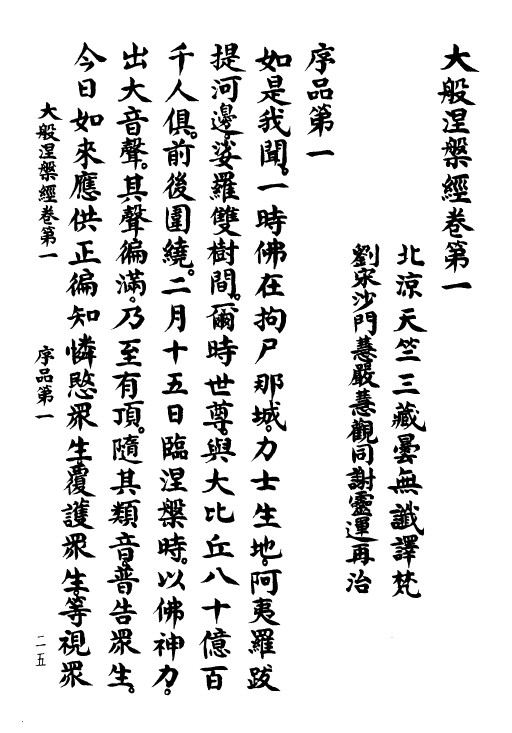 大般涅槃經卷第一
北涼天竺三藏曇無讖譯梵
劉宋沙門慧嚴慧觀同謝靈運再治
序品第一
如是我聞。一時佛在拘尸那城。力士生地。阿夷羅跋
提河邊。娑羅雙樹間。爾時世尊。與大比丘八十億百
千人俱。前後圍繞。二月十五日臨涅槃時。以佛神力。
出大音聲。其聲徧滿。乃至有頂。隨其類音。普告眾生。
今日如來應供正徧知憐愍眾生覆護眾生。等視眾
大般涅槃經卷第一 序品第一 二五